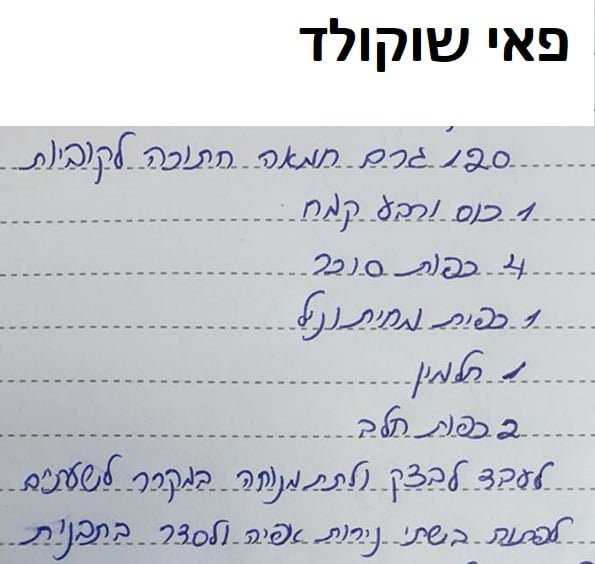 פאי שוקולד
120 גרם חמאה חתוכה לקוביות
1 כוס ורבע קמח
4 כפות סוכר
1 כפית מחית וניל
1 חלמון
2 כפות חלב
לעבד לבצק ולתת מנוחה במקרר לשעתיים
לפתוח בשתי נירות אפיה ולסדר בתבנית